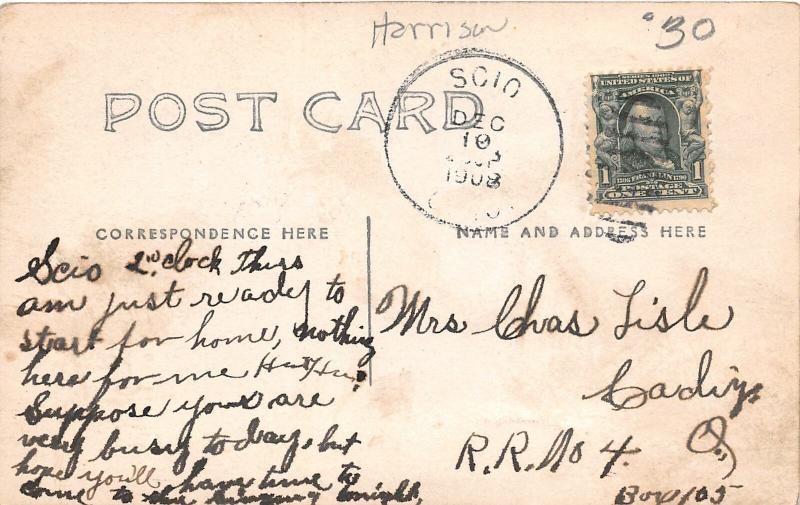 Harrison
30
POST CARD
SCIO
DEC
10
1908
SERIES 1902
UNITED STATES OF
AMERICA
1 1706 FRANKLIN 1790 1
POSTAGE
ONE CENT
CORRESPONDENCE HERE
NAME AND ADDRESS HERE
Scio 2 o'clock Thurs
am just ready to
start for home, nothing
here for me
Suppose you are
very busy today, but
hope you'll have time to
come to the tonight,
Mrs Chas Lisle
Cadiz
R.R. No 4. O,
Box 105